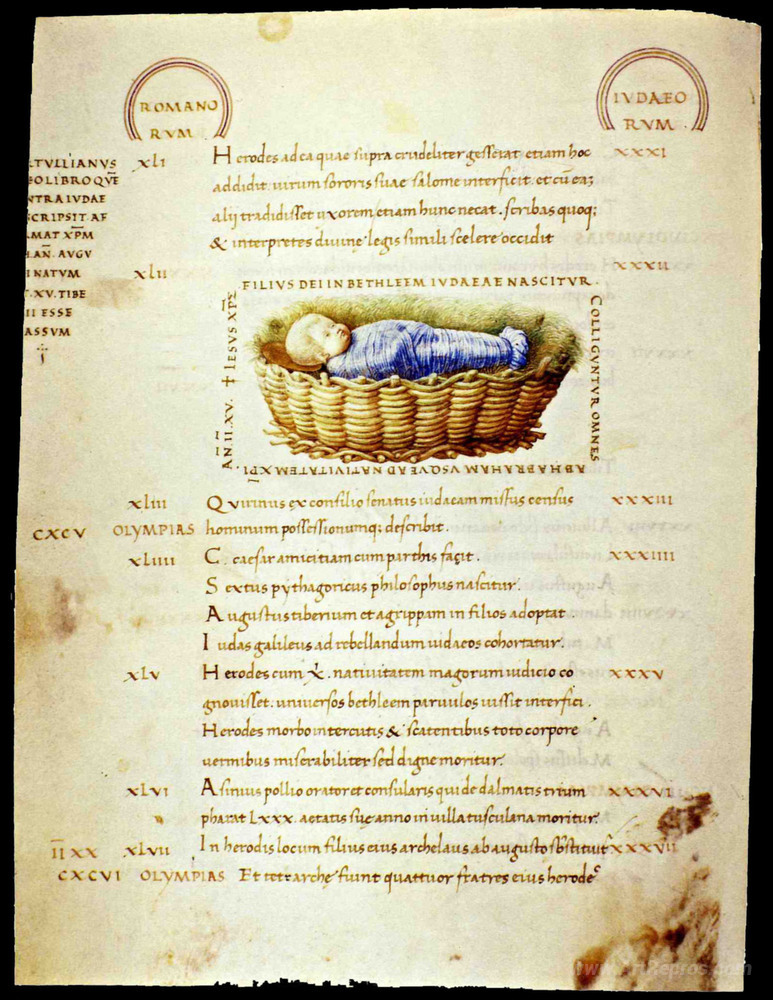 ROMANO
RVM .
IVDAEO
RVM .
TVLLIANVS
EOLIBROQVE
NTRA IVDAE
CRIPSIT AF
MAT XP̄M
AN̄. AVGV
I NATVM
XV. TIBE
II ESSE
ASSVM
XLI Herodes ad ea quae supra crudeliter gesserat etiam hoc XXXI
addidit. uirum sororis suae salome interficit. et cū eā;
alij tradidisset uxorem, etiam hunc necat. scribas quoq;
& interpretes diuinę legis simili scelere occidit
XLII XXXII
FILIVS DEI IN BETHLEEM IVDAEAE NASCITVR .
AN̄. II. XV. ✝ IESVS XP̄S
COLLIGVNTVR OMNES
AB HABRAHAM VSQVE AD NATIVITATEM XPI.
XLIII Quirinus ex consilio senatus iudaeam missus census XXXIII
CXCV OLYMPIAS hominum possessionumq; describit.
XLIIII C. caesar amicitiam cum parthis facit. XXXIIII
Sextus pythagoricus philosophus nascitur.
Augustus tiberium et agrippam in filios adoptat
Iudas galileus ad rebellandum iudaeos cohortatur.
XLV Herodes cum nativitatem magorum iudicio co XXXV
gnouisset. uniuersos bethleem paruulos iussit interfici.
Herodes morbo intercutis & scatentibus toto corpore
uermibus miserabiliter sed digne moritur.
XLVI Asinius pollio orator et consularis qui de dalmatis trium XXXVI
pharat LXXX. aetatis suę anno in uilla tusculana moritur.
II XX XLVII In herodis locum filius eius archelaus ab augusto sbstituitˀ XXXVII
CXCVI OLYMPIAS Et tetrarchę fiunt quattuor fratres eius herodeˢ